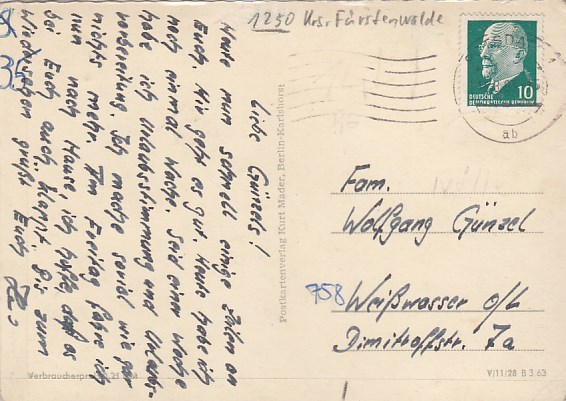 1250 Krs. Fürstenwalde
Liebe Günzels!
Heute nun schnell einige Zeilen an
Euch. Mir geht es gut. Heute habe ich
noch einmal Wache. Seid einer Woche
habe ich Urlaubsstimmung und Urlaubs-
vorbereitung. Ich mache soviel wie gar
nichts mehr. Am Freitag fahre ich
nun nach Hause, ich hoffe, daß es
bei Euch auch klappt. Bis zum
Wiedersehen grüßt Euch
Postkartenverlag Kurt Mader, Berlin-Karlshorst
DEUTSCHE
DEMOKRATISCHE REPUBLIK
10
ab
Fam.
Wolfgang Günzel
758 Weißwasser o/L
Dimitroffstr. 7a
V/11/28 B 3 63